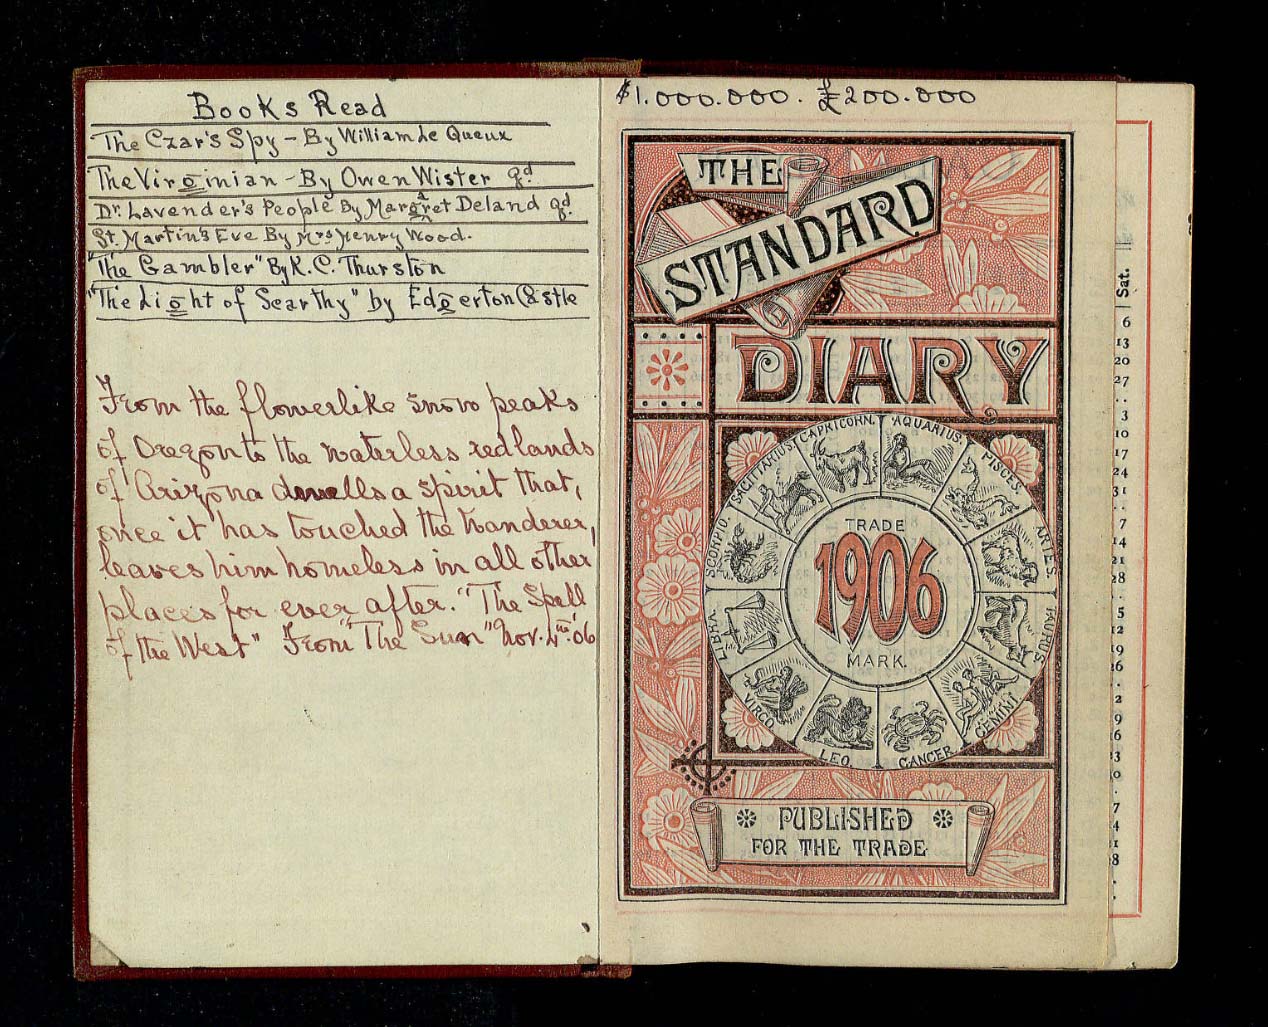 Books Read
The Czar's Spy - By William Le Queux
The Virginian - By Owen Wister gd
Dr. Lavender's People By Margaret Deland gd
St. Martin's Eve By Mrs Henry Wood.
"The Gambler" By K. C. Thurston
"The Light of Scarthy" by Edgerton Castle
From the flowerlike snow peaks
of Oregon to the waterless redlands
of Arizona dwells a spirit that,
once it has touched the wanderer,
leaves him homeless in all other
places for ever after. "The Spell
of the West" From "The Sun" Nov. 4th '06
$1.000.000. £200.000
THE
STANDARD
DIARY
SAGITTARIUS
CAPRICORN.
AQUARIUS.
PISCES.
ARIES
TAURUS
GEMINI
CANCER
LEO.
VIRGO
LIBRA
SCORPIO.
TRADE
1906
MARK.
PUBLISHED
FOR THE TRADE
Sat.
6
13
20
27
3
10
17
24
31
7
14
21
28
5
12
19
26
2
9